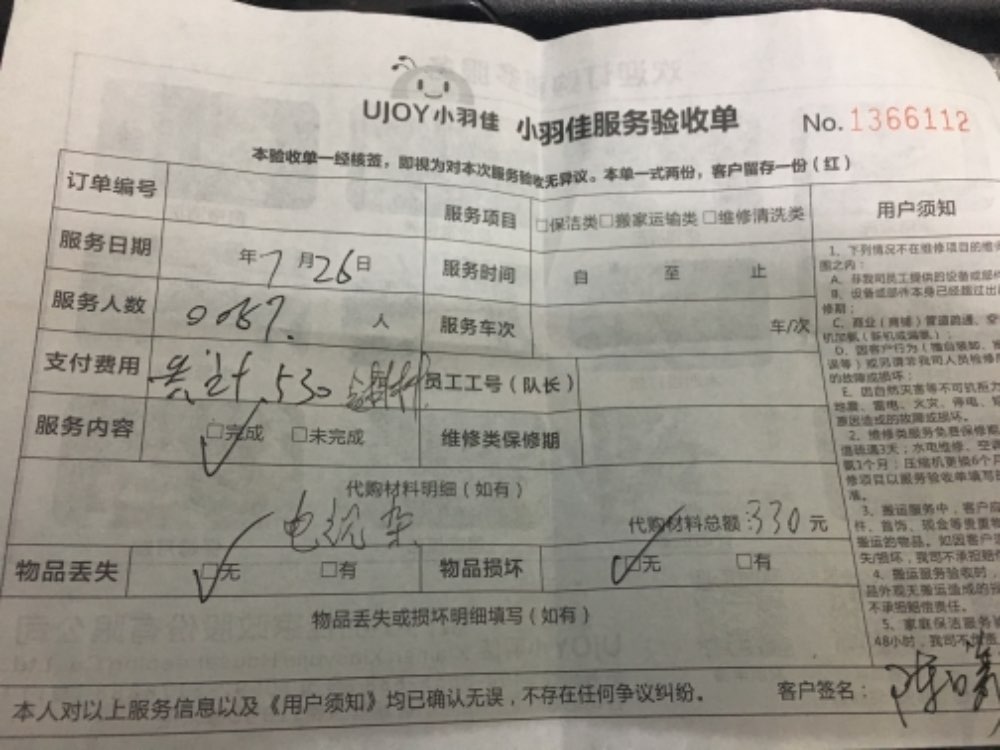 UJOY小羽佳 小羽佳服务验收单 No.1366112
本验收单一经核签，即视为对本次服务验收无异议。本单一式两份，客户留存一份（红）
订单编号 服务项目 □保洁类□搬家运输类□维修清洗类 用户须知
服务日期 年7月26日 服务时间 自 至 止
服务人数 0067. 人 服务车次 车/次
支付费用 共计530 员工工号（队长）
服务内容 □完成 □未完成 维修类保修期
代购材料明细（如有）
电视架 代购材料总额:330元
物品丢失 □无 □有 物品损坏 □无 □有
物品丢失或损坏明细填写（如有）
本人对以上服务信息以及《用户须知》均已确认无误，不存在任何争议纠纷。 客户签名：
1、下列情况不在维修项目的维
围之内：
A、非我司员工提供的设备或部件
B、设备或部件本身已经超过出
修期；
C、商业（商铺）管道疏通、空
机加氨（新机或漏氨）；
D、因客户行为（擅自装卸、
误等）或另请非我司人员检修
的故障或损坏；
E、因自然灾害等不可抗力
地震、雷电、火灾、停电、
原因造成的故障或损坏。
2、维修类服务免费保修期
道疏通3天；水电维修、空
氨1个月；压缩机更换6个月
修项目以服务验收单填写
准。
3、搬运服务中，客户应
件、首饰、现金等贵重物
搬运的物品。如因客户
失/损坏，我司不承担赔
4、搬运服务验收时，
品外观无搬运造成的
不承担赔偿责任。
5、家庭保洁服务
48小时，我司不